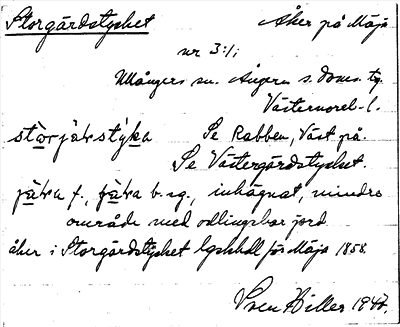 Storgärdstycket Åker på Måja
nr 3:1;
Ullångers sn. Ångerm. s. doms. tg.
Västernorrl. l.
Se Rabben, Väst på.
Se Västergärdstycket.
f., b. sg., inhägnat, mindre
område med odlingsbar jord.
åker i Storgärdstycket Lgskhdl för Måja 1858.
Sven Hiller 1947.